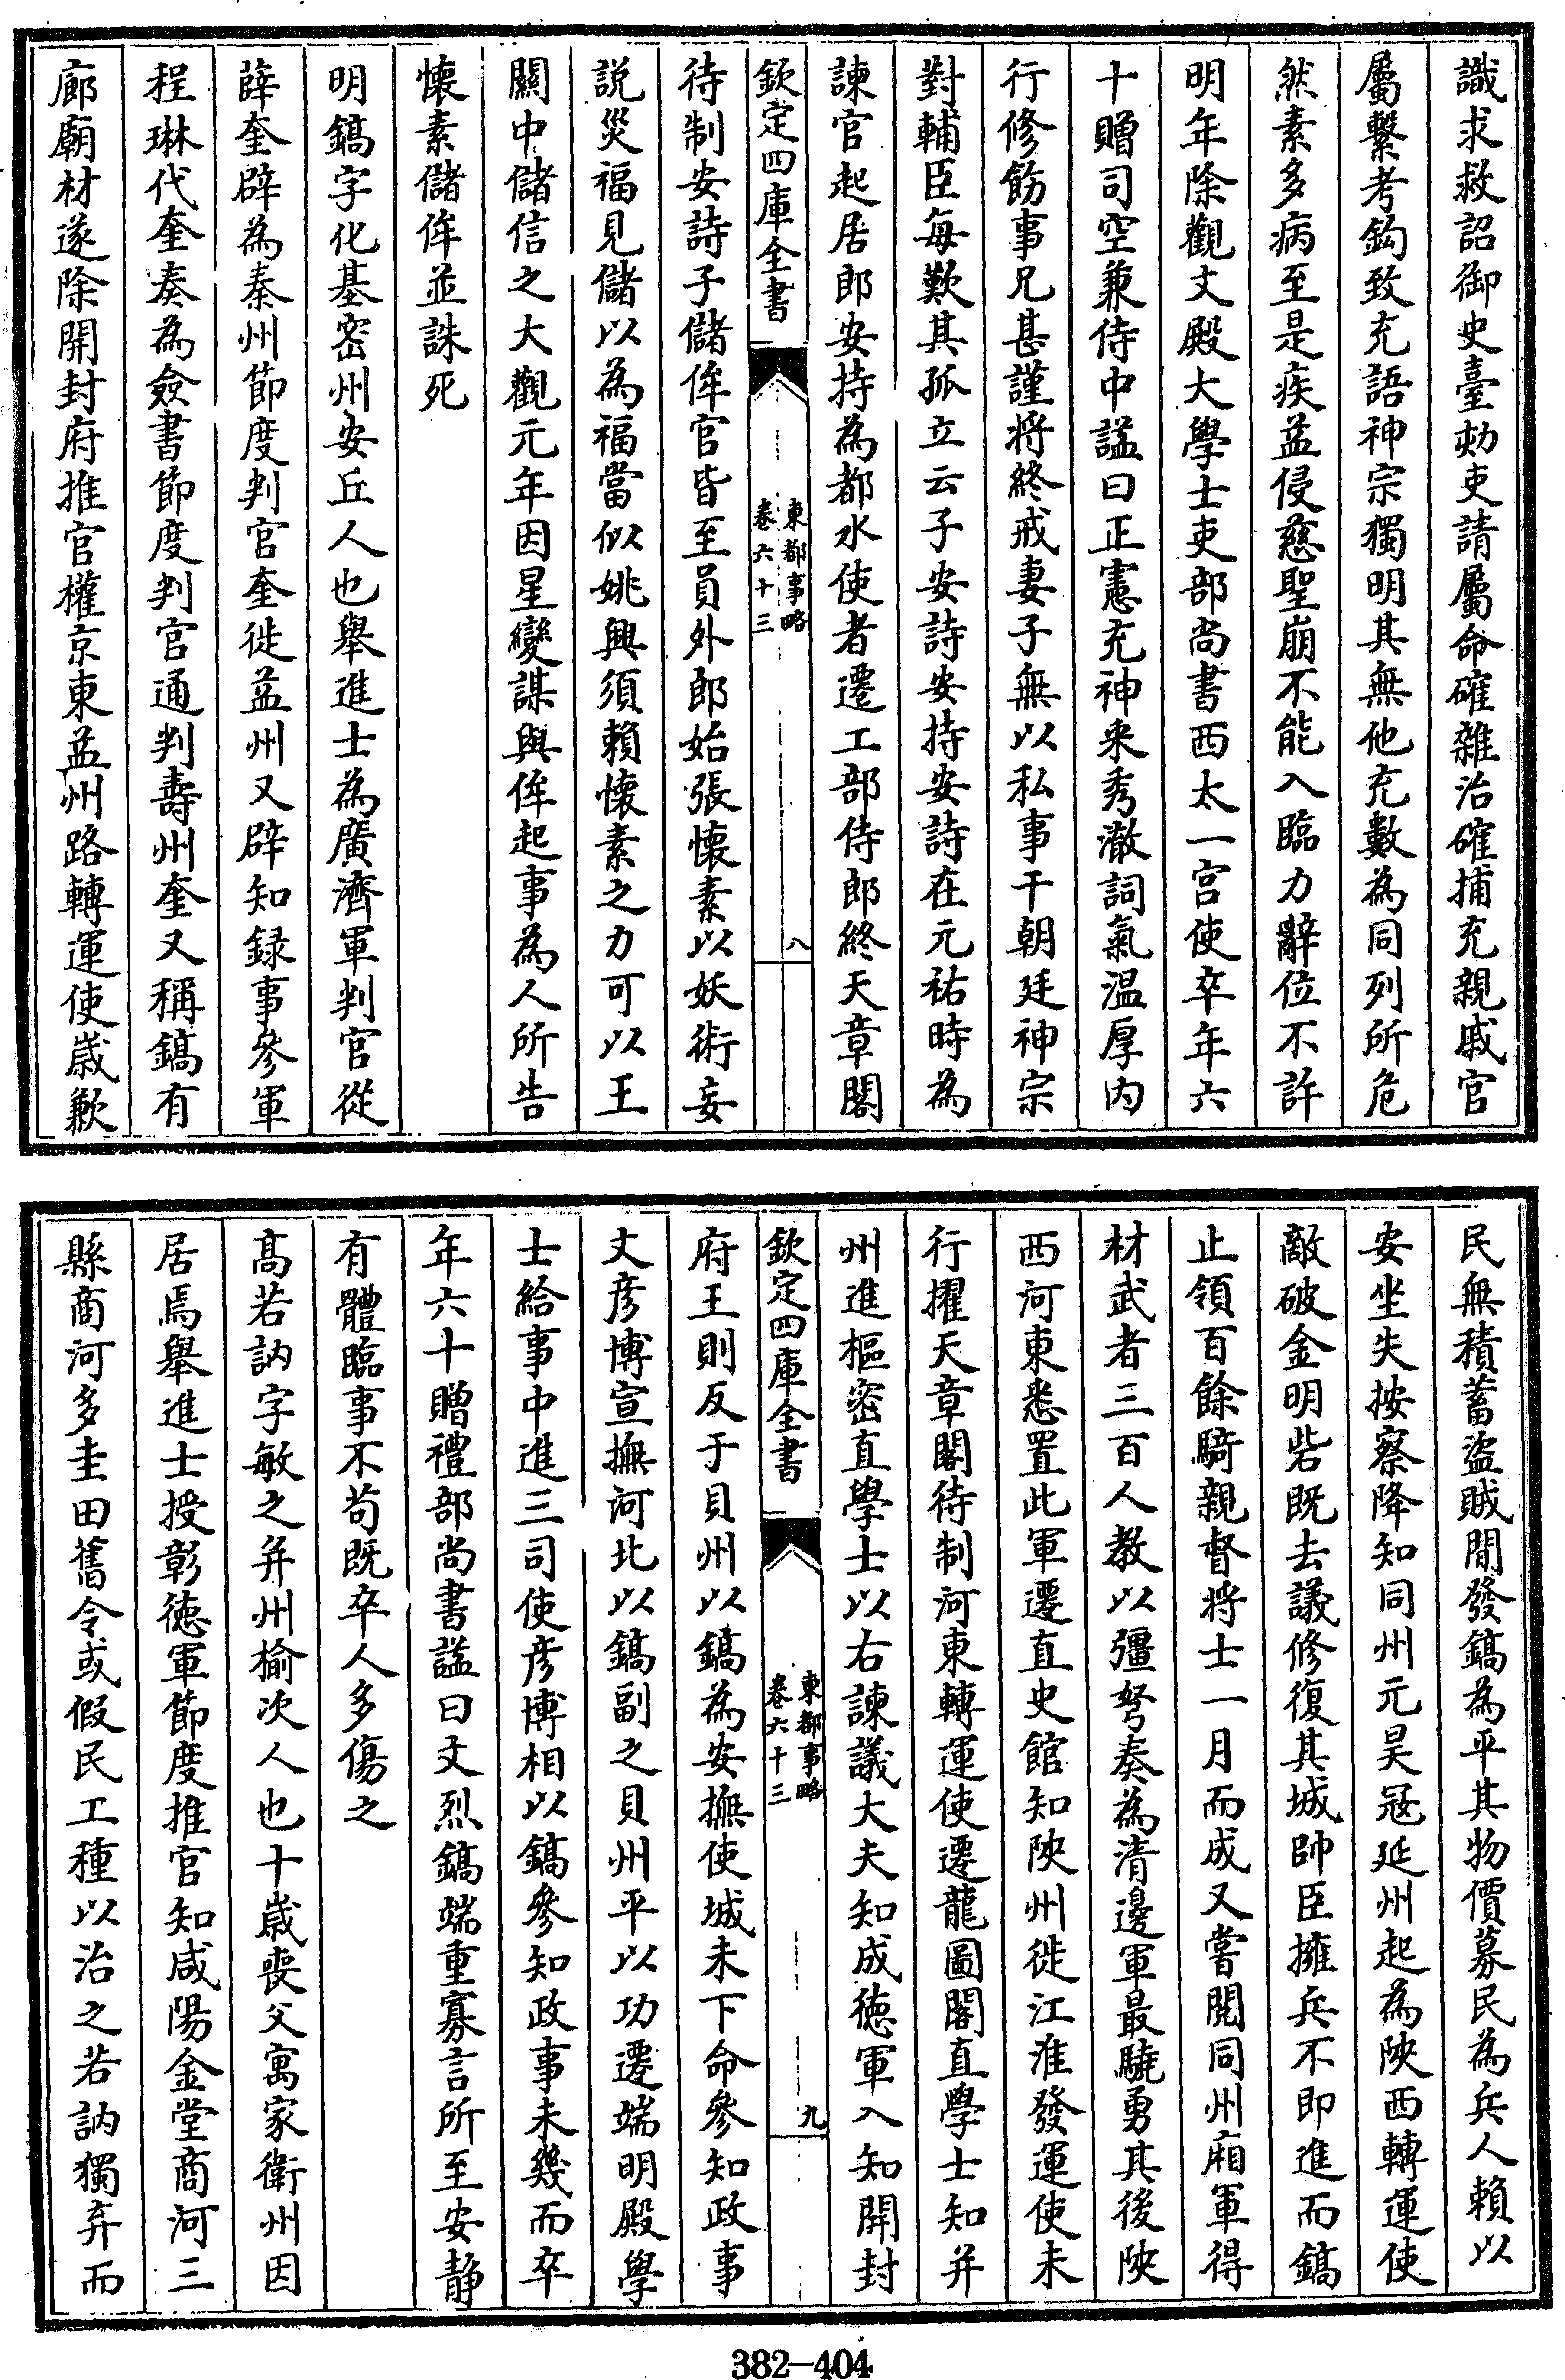 識求救詔御史臺劾吏請屬命確雜治確捕充親戚官
屬繫考鈎致充語神宗獨明其無他充數為同列所危
然素多病至是疾益侵慈聖崩不能入臨力辭位不許
明年除觀文殿大學士吏部尚書西太一宫使卒年六
十贈司空兼侍中諡曰正憲充神采秀澈詞氣温厚内
行修飭事兄甚謹將終戒妻子無以私事干朝廷神宗
對輔臣每歎其孤立云子安詩安持安詩在元祐時為
諫官起居郎安持為都水使者遷工部侍郎終天章閣
欽定四庫全書
東都事略
卷六十三
八
待制安詩子儲侔官皆至員外郎始張懐素以妖術妄
説災福見儲以為福當似姚興須賴懐素之力可以王
闗中儲信之大觀元年因星變謀與侔起事為人所告
懐素儲侔並誅死
明鎬字化基密州安丘人也舉進士為廣濟軍判官從
薛奎辟為秦州節度判官奎徙益州又辟知録事參軍
程琳代奎奏為僉書節度判官通判壽州奎又稱鎬有
廊廟材遂除開封府推官權京東益州路轉運使嵗歉
民無積蓄盜賊間發鎬為平其物價募民為兵人賴以
安坐失按察降知同州元昊宼延州起為陜西轉運使
敵破金明砦既去議修復其城帥臣擁兵不即進而鎬
止領百餘騎親督將士一月而成又嘗閱同州廂軍得
材武者三百人教以彊弩奏為清邊軍最驍勇其後陜
西河東悉置此軍遷直史館知陜州徙江淮發運使未
行擢天章閣待制河東轉運使遷龍圖閣直學士知并
州進樞密直學士以右諫議大夫知成徳軍入知開封
欽定四庫全書
東都事略
卷六十三
九
府王則反于貝州以鎬為安撫使城未下命參知政事
文彦博宣撫河北以鎬副之貝州平以功遷端明殿學
士給事中進三司使彦博相以鎬參知政事未幾而卒
年六十贈禮部尚書諡曰文烈鎬端重寡言所至安静
有體臨事不茍既卒人多傷之
髙若訥字敏之并州榆次人也十嵗喪父寓家衛州因
居焉舉進士授彰徳軍節度推官知咸陽金堂商河三
縣商河多圭田舊令或假民工種以治之若訥獨弃而
382—404